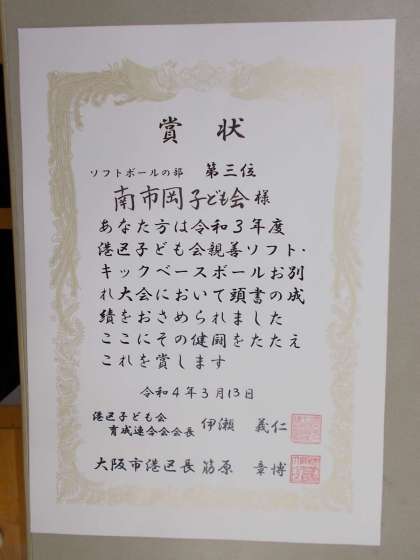 賞状
ソフトボールの部 第三位
南市岡子ども会様
あなた方は令和3年度
港区子ども会親善ソフト・
キックベースボールお別
れ大会において頭書の成
績をおさめられました
ここにその健闘をたたえ
これを賞します
令和4年3月13日
港区子ども会
育成連合会会長 伊瀬 義仁
大阪市港区長 筋原 章博